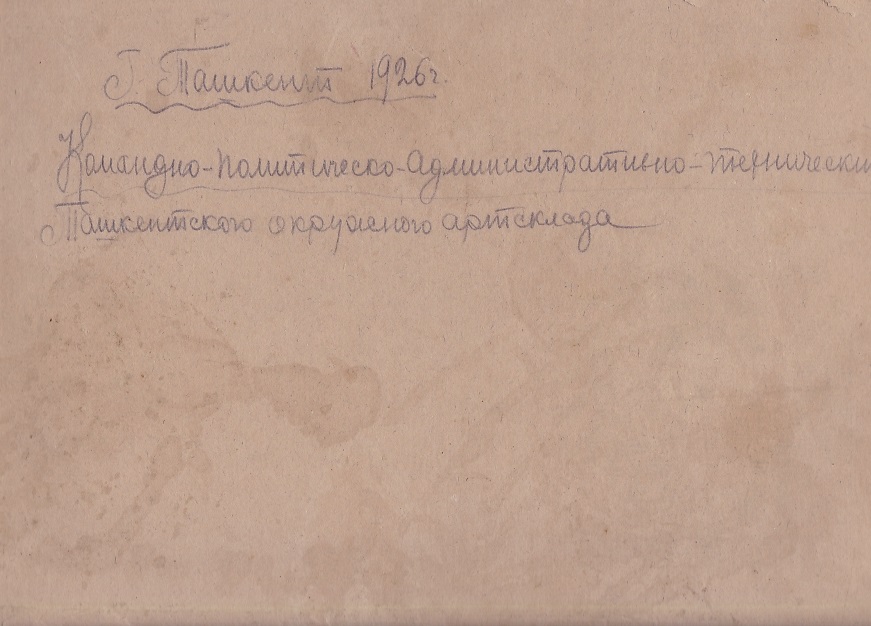 Г. Ташкент 1926г.
Командно-Политическо-Административно-технически
Ташкентского окружного артсклада